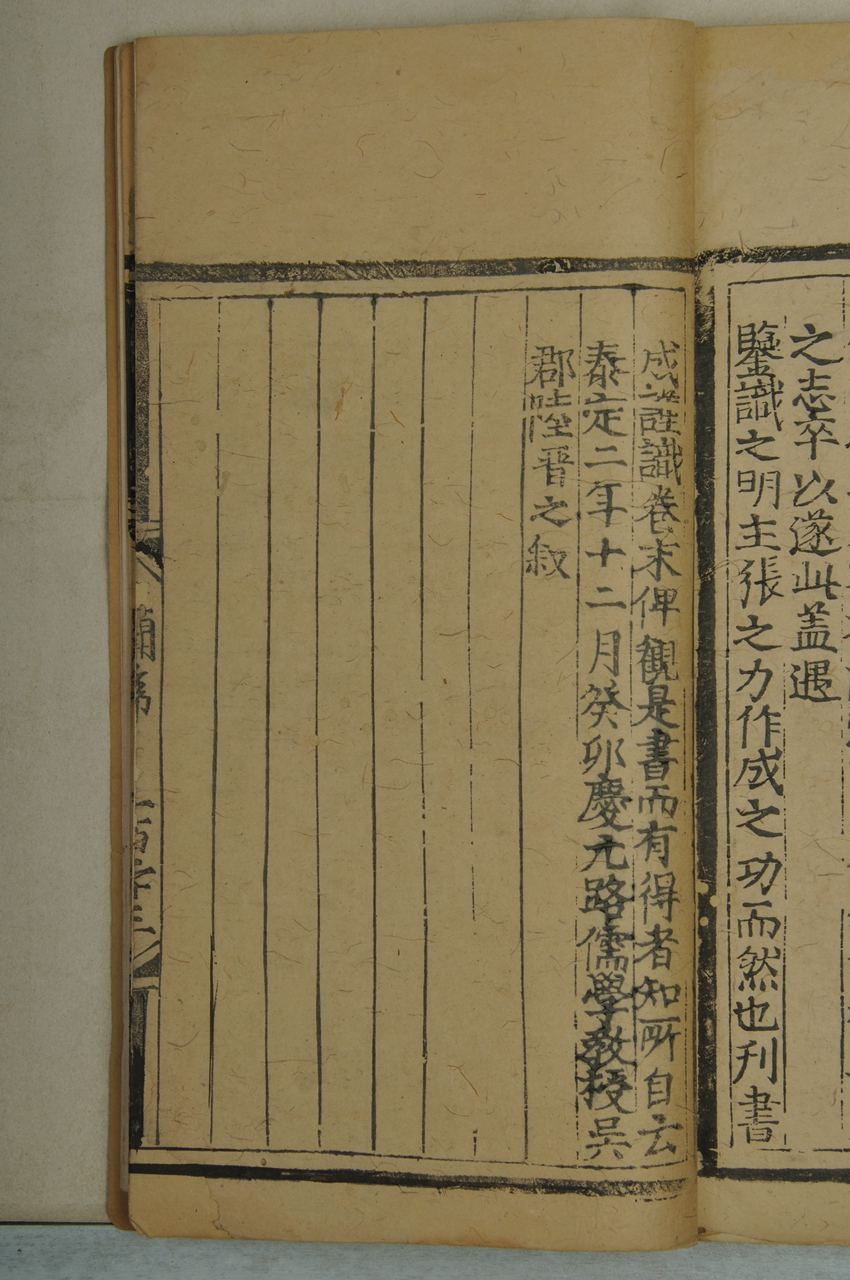 之志卒以遂此盖遇
鑒識之明主張之力作成之功而然也刋書
成謹識卷末俾觀是書而有得者知所自云
泰定二年十二月癸卯慶元路儒學教授吳
郡陸晋之叙